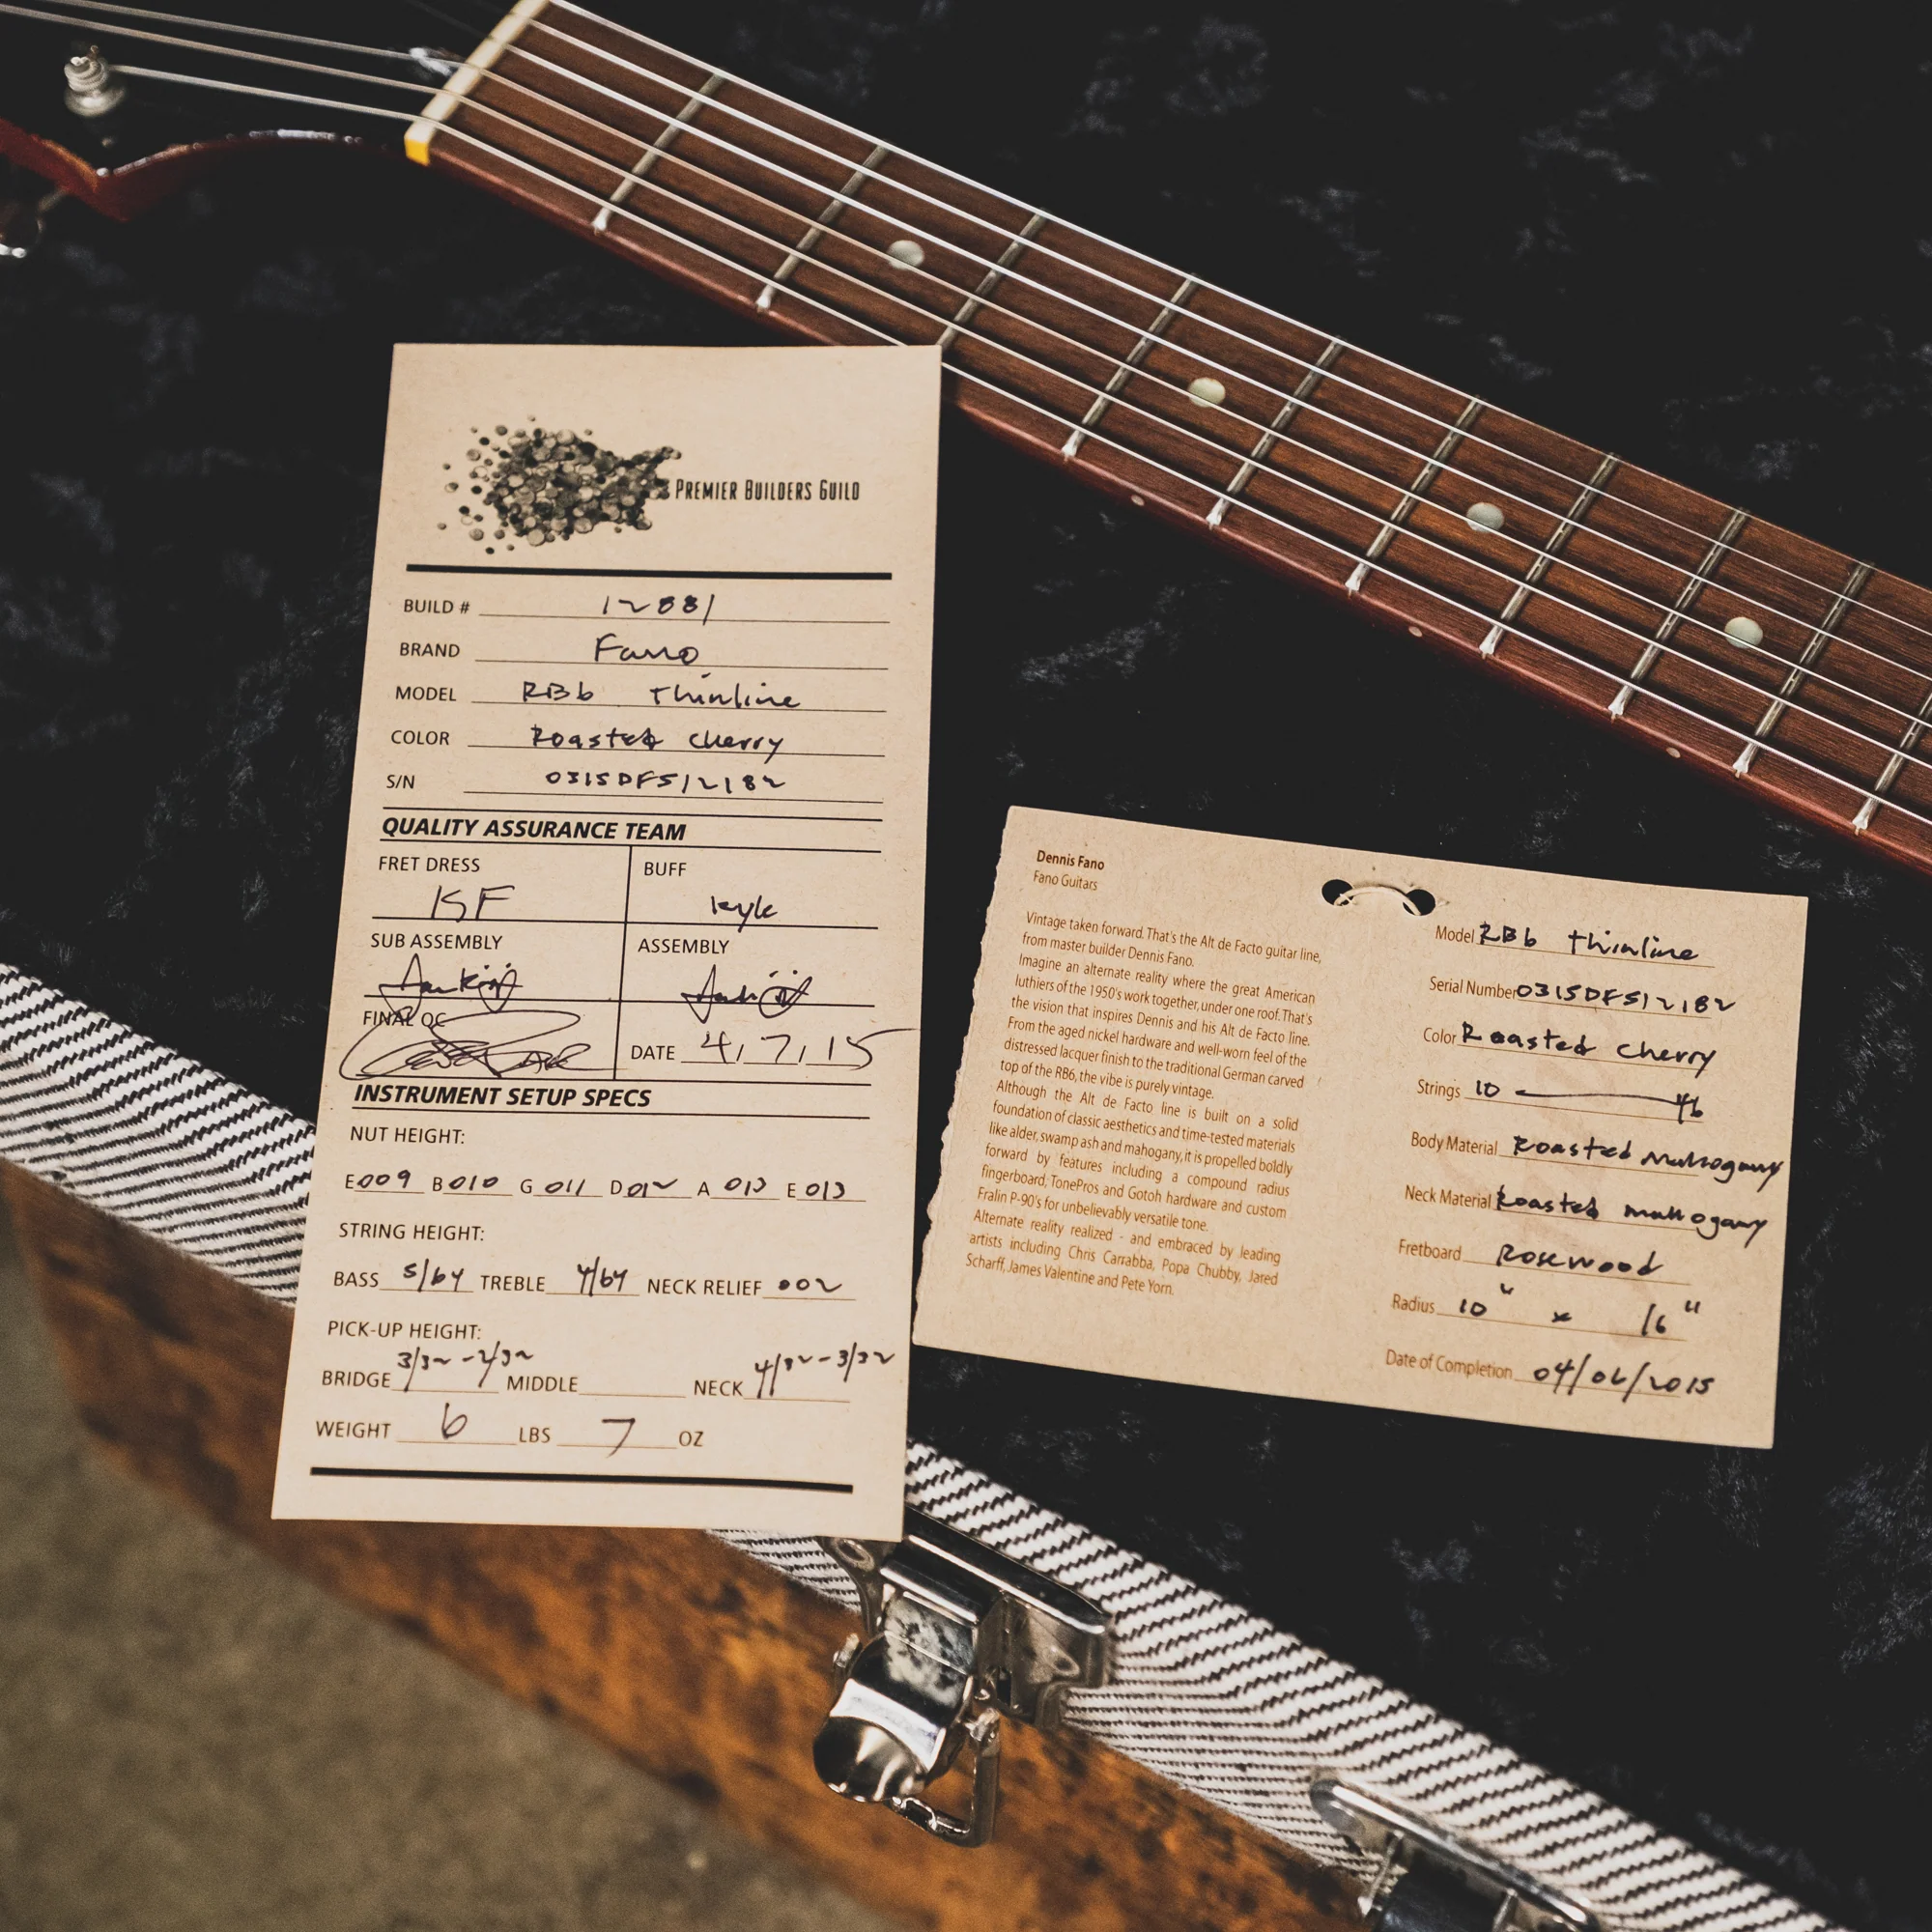 PREMIER BUILDERS GUILD
BUILD # 12881
BRAND Fano
MODEL RB6 Thinline
COLOR Roasted Cherry
S/N 0315DFS12182
QUALITY ASSURANCE TEAM
FRET DRESS BUFF
KSF Kyle
SUB ASSEMBLY ASSEMBLY
FINAL QC
DATE 4/7/15
INSTRUMENT SETUP SPECS
NUT HEIGHT:
E 009 B 010 G 011 D 012 A 013 E 013
STRING HEIGHT:
BASS 5/64 TREBLE 4/64 NECK RELIEF .002
PICK-UP HEIGHT:
BRIDGE 3/32-2/32 MIDDLE NECK 4/32-3/32
WEIGHT 6 LBS 7 OZ
Dennis Fano
Fano Guitars
Vintage taken forward. That's the Alt de Facto guitar line,
from master builder Dennis Fano.
Imagine an alternate reality where the great American
luthiers of the 1950's work together, under one roof. That's
the vision that inspires Dennis and his Alt de Facto line.
From the aged nickel hardware and well-worn feel of the
distressed lacquer finish to the traditional German carved
top of the RB6, the vibe is purely vintage.
Although the Alt de Facto line is built on a solid
foundation of classic aesthetics and time-tested materials
like alder, swamp ash and mahogany, it is propelled boldly
forward by features including a compound radius
fingerboard, TonePros and Gotoh hardware and custom
Fralin P-90's for unbelievably versatile tone.
Alternate reality realized - and embraced by leading
artists including Chris Carrabba, Popa Chubby, Jared
Scharff, James Valentine and Pete Yorn.
Model RB6 Thinline
Serial Number 0315DFS12182
Color Roasted Cherry
Strings 10 — 46
Body Material Roasted Mahogany
Neck Material Roasted mahogany
Fretboard Rosewood
Radius 10" x 16"
Date of Completion 04/06/2015